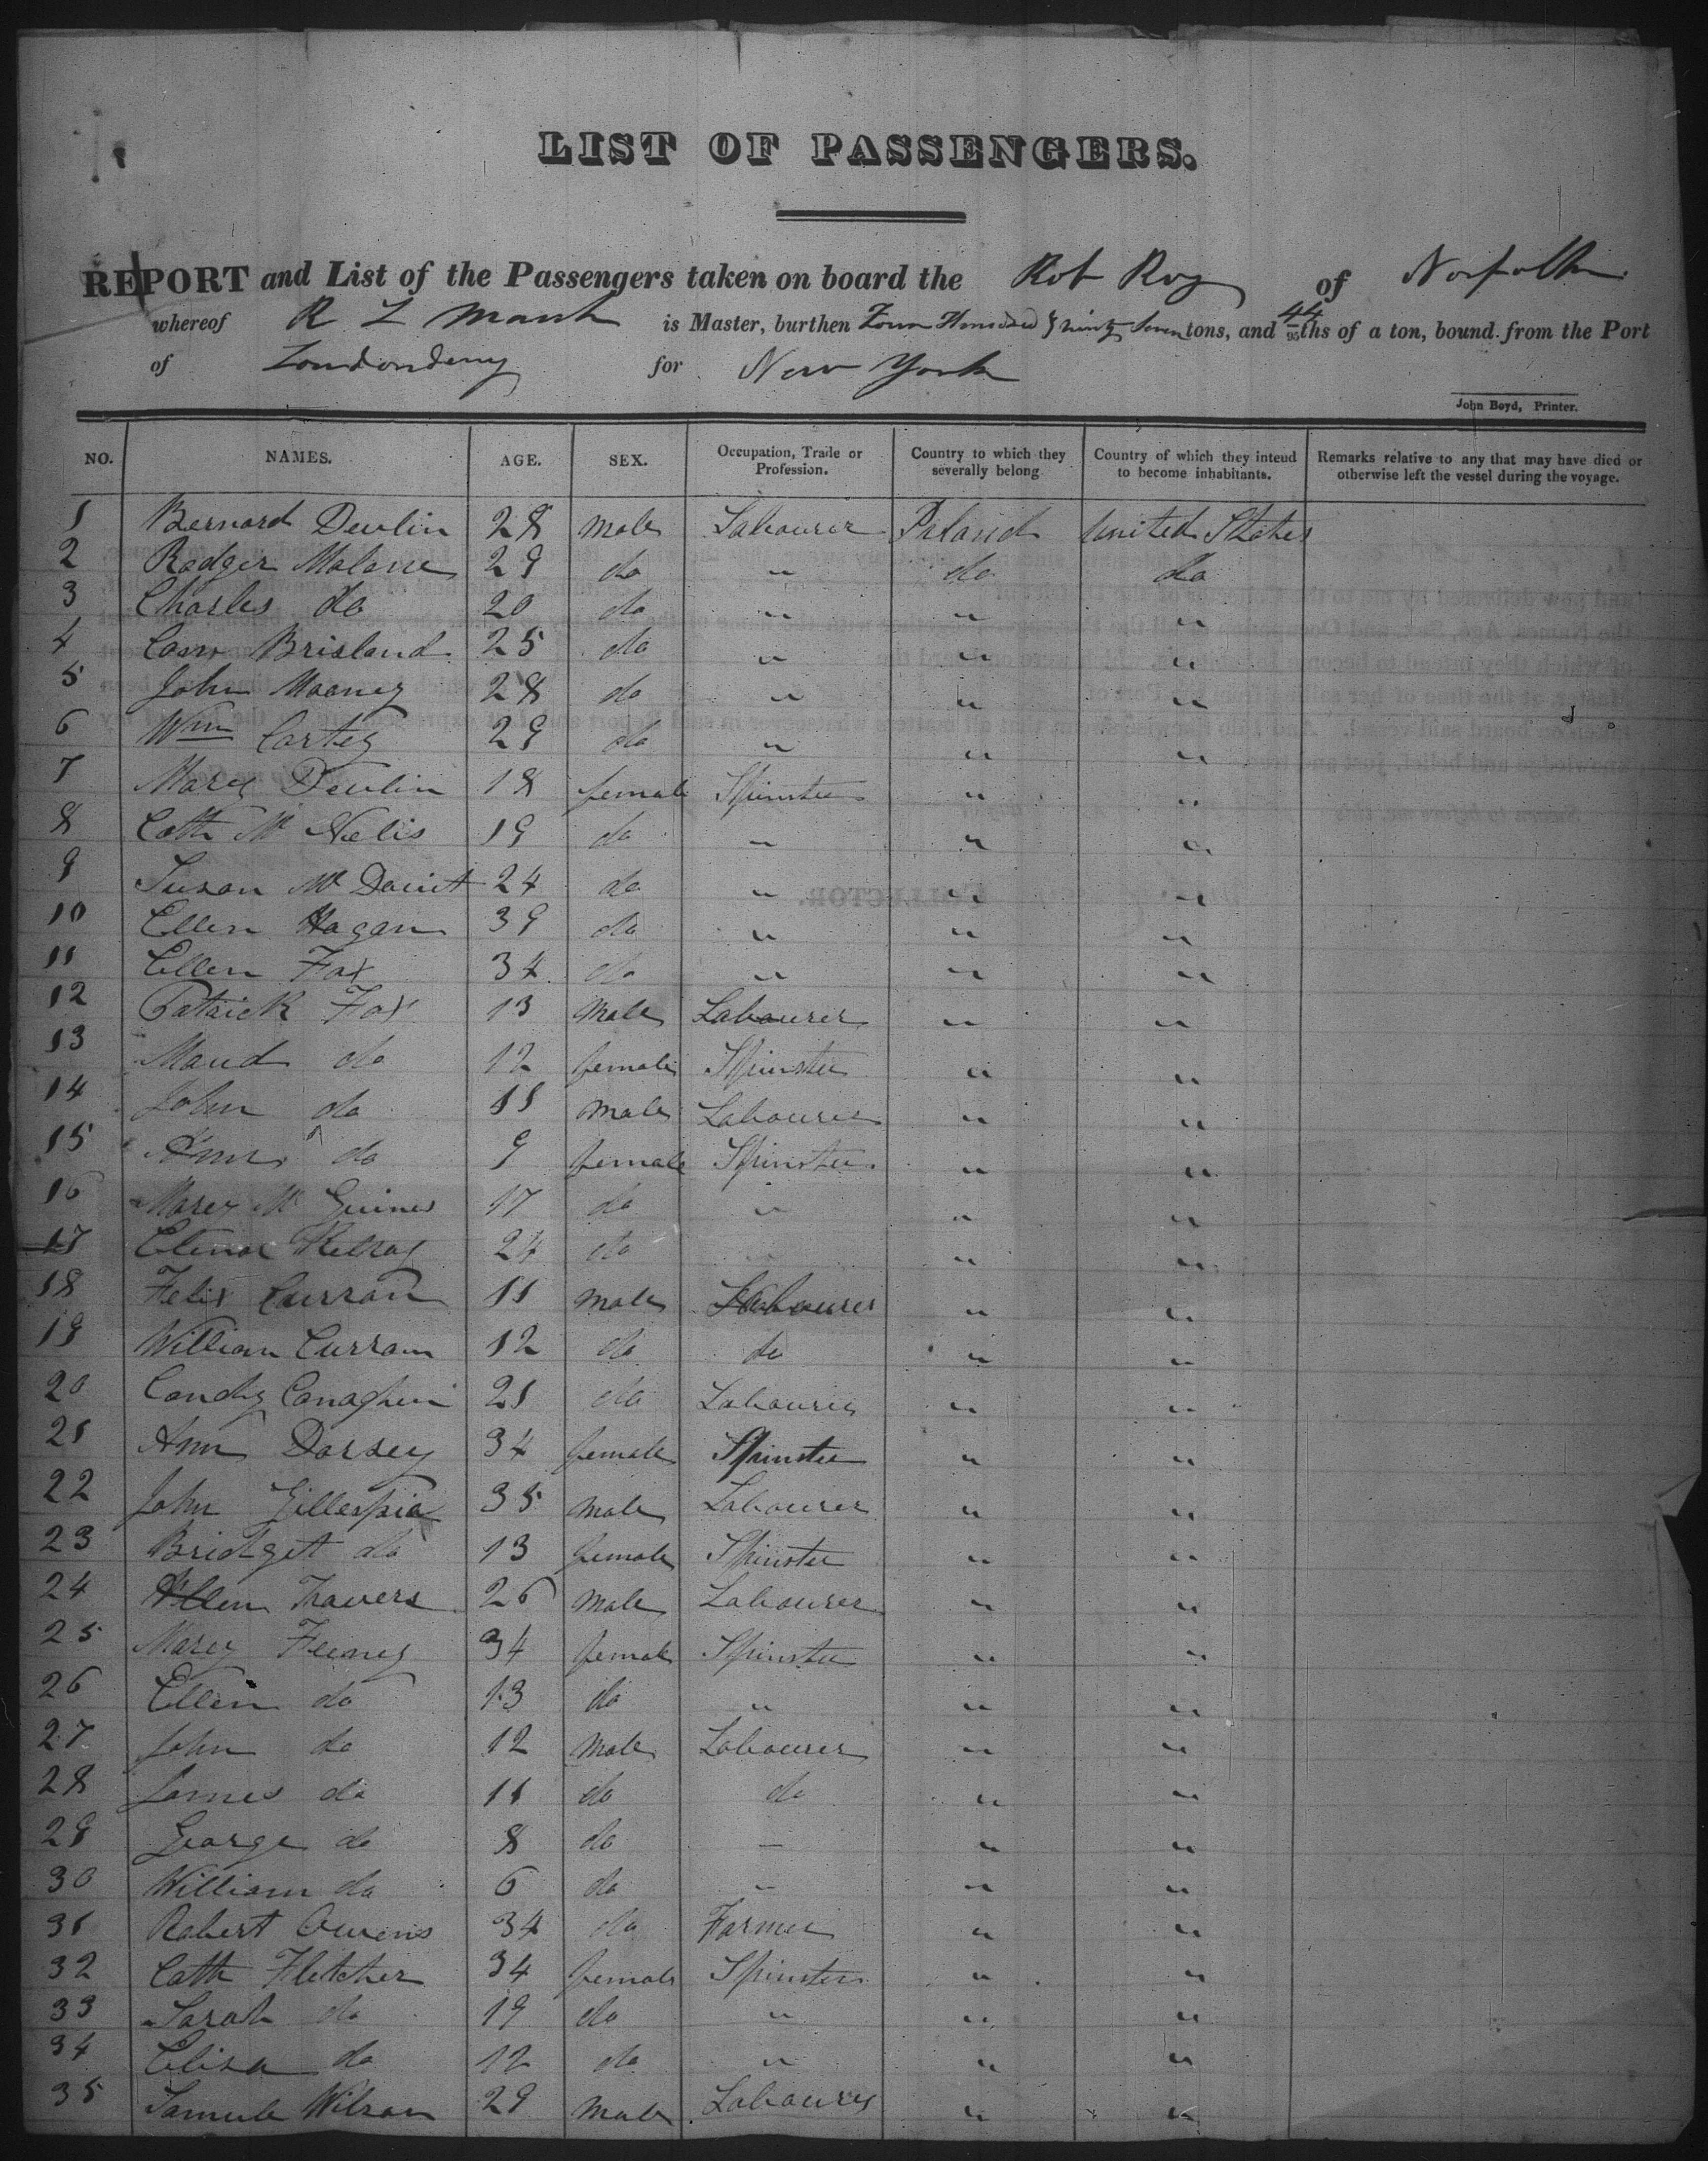 LIST OF PASSENGERS.
REPORT and List of the Passengers taken on board the Rob Roy of Norfolk
whereof R L is Master, burthen Four Hundred & ninty Seven tons, and 44/95ths of a ton, bound from the Port
of Londonderry for New York
John Boyd, Printer.
NO. NAMES. AGE. SEX. Occupation, Trade or Profession. Country to which they severally belong Country of which they intend to become inhabitants. Remarks relative to any that may have died or otherwise left the vessel during the voyage.
1 Bernard Devlin 28 male Labourer Irland United States
2 Rodger Malone 29 do " do do
3 Charles do 20 do " " "
4 Brisland 25 do " " "
5 John Mooney 28 do " " "
6 Wm Carter 29 do " " "
7 Mary Devlin 18 female Spinster " "
8 Cath Mc Nelis 19 do " " "
9 Susan Mc 24 do " " "
10 Ellen Hagan 39 do " " "
11 Ellen Fox 34 do " " "
12 Patrick Fox 13 Male Labourer " "
13 Maud do 12 female Spinster " "
14 John do 11 male Labourer " "
15 Ann do 9 female Spinster " "
16 Mary Mc Guines 17 do " " "
17 Elenor 24 do " " "
18 Felix Curran 11 male Labourer " "
19 William Curran 12 do do " "
20 Condy Conaghen 21 do Labourer " "
21 Ann Dorsey 34 female Spinster " "
22 John Gillespie 35 male Labourer " "
23 Bridget do 13 female Spinster " "
24 Travers 26 male Labourer " "
25 Mary Feeney 34 female Spinster " "
26 Ellen do 13 do " " "
27 John do 12 male Labourer " "
28 James do 11 do do " "
29 George do 8 do — " "
30 William do 6 do " " "
31 Robert Owens 34 do Farmer " "
32 Cath Fletcher 34 female Spinster " "
33 Sarah do 19 do " " "
34 Elisa do 12 do " " "
35 Samule Wilson 29 male Labourer " "